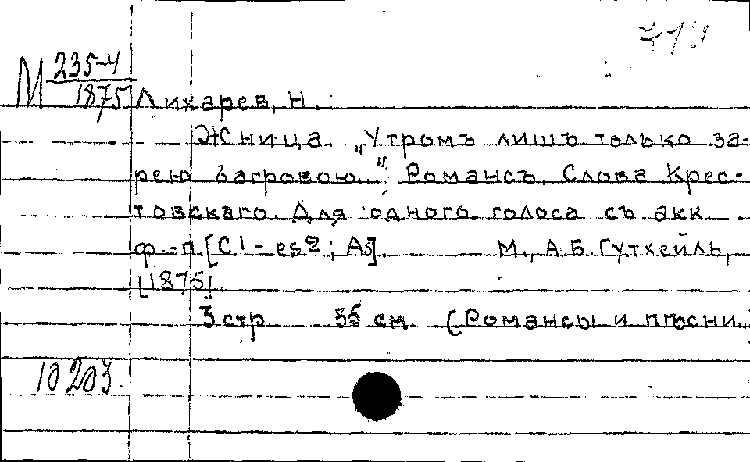 М 235-4
1875
Лихарев, Н.
Жница. „Утромъ лишъ только за-
рею багровою..." Романсъ. Слова Крес-
товскаго. Для одного голоса съ акк.
ф.-п. [C1-es2; As]. М., А.Б. Гутхейль,
[1875].
3 стр 35 см (Романсы и пѣсни.
10203.